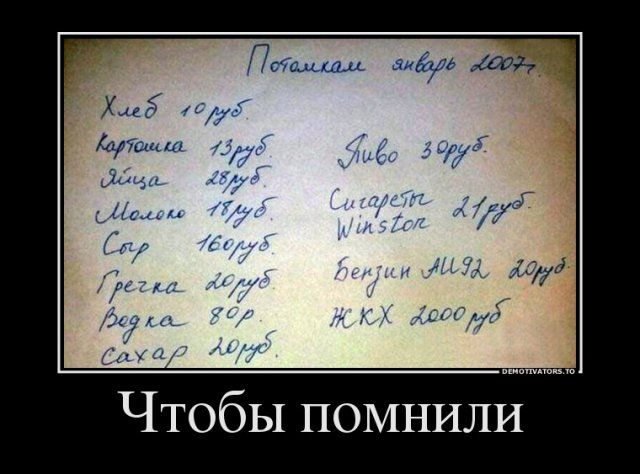 Потомкам январь 2007г.
Хлеб 10 руб.
Картошка 13руб.
Яйца 28руб.
Молоко 18руб.
Сыр 160руб.
Гречка 20руб.
Водка 80р.
Сахар 20руб.
Пиво 30руб.
Сигареты Winston 21руб.
Бензин АИ92 20руб
ЖКХ 2000руб
DEMOTIVATORS.TO
Чтобы помнили